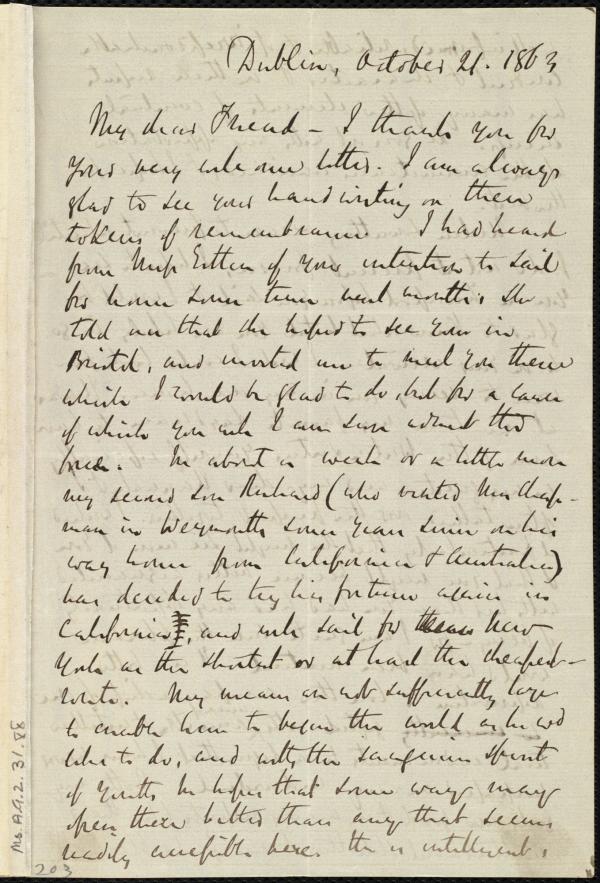 Dublin, October 21. 1863
My dear Friend - I thank you for
your very welcome letter. I am always
glad to see your handwriting on these
tokens of remembrance. I had heard
from Miss Estlin of your intention to sail
for home some time next month; she
told me that she hoped to see you in
Bristol, and invited me to meet you there
which I would be glad to do, but for a cause
of which you will I am sure admit the
force. In about a week or a little more
my second son Richard (who visited Mrs Chap-
man in Weymouth some years since on his
way home from California & Australia)
has decided to try his fortune again in
California, and will sail for New
York as the shortest or at least the cheapest
route. My means are not sufficiently large
to enable him to begin the world as he wd
like to do, and with the sanguine spirit
of youth he hopes that some way may
open there better than any that seems
readily accessible here. He is intelligent,
Ms. A.9.2.31.88
203